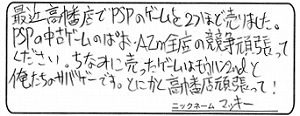 最近高幡店でPSPのゲームを2つほど売りました。
PSPの中古ゲームのばあい、AZm全店の競争頑張って
ください。ちなみに売ったゲームはモウハン2ndと
俺たちのサバゲーです。とにかく高幡店頑張って!
ニックネーム マッキー